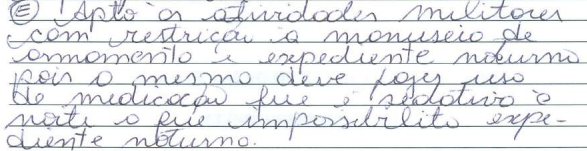 (E) Apto a atividades militares
com restrição a manuseio de
armamento e expediente noturno
pois o mesmo deve fazer uso
de medicação que é sedativa à
noite o que impossibilita expe-
diente noturno.